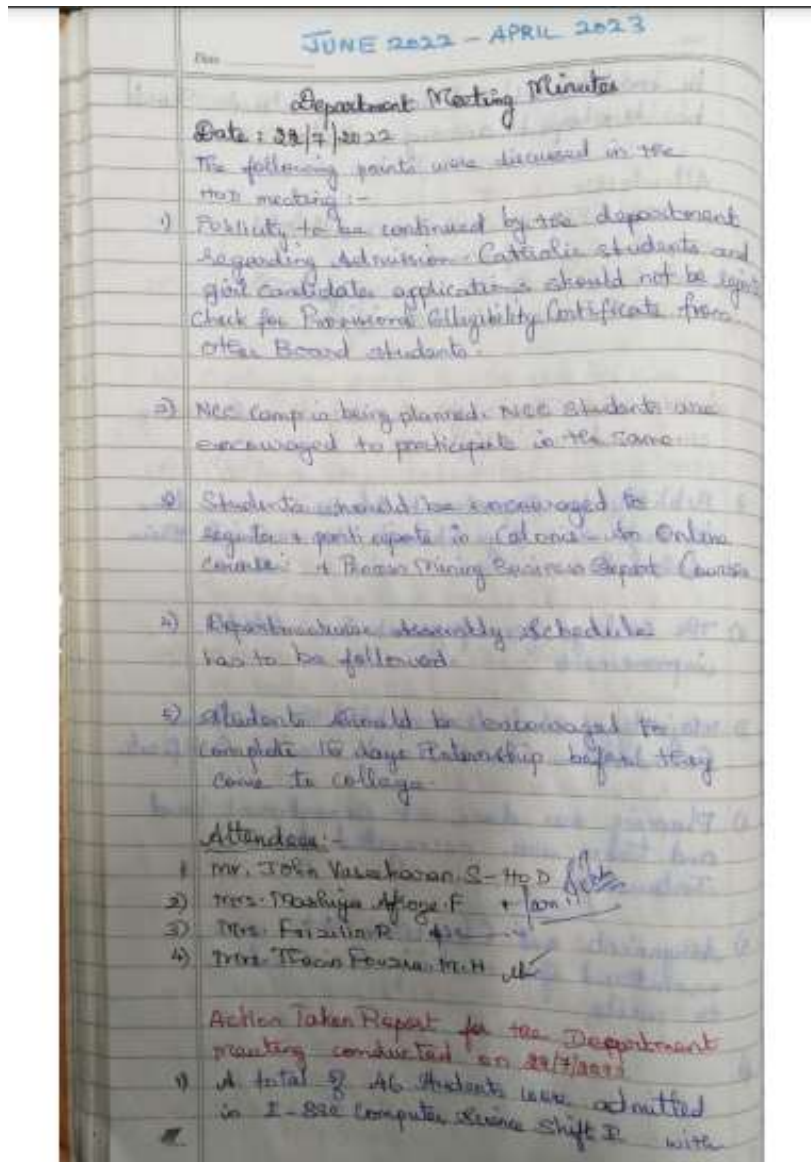 JUNE 2022 - APRIL 2023
Date
Department Meeting Minutes
Date: 29/7/2022
The following points were discussed in the
HOD meeting :-
1) Publicity to be continued by the department
regarding Admission. Catholic students and
girl candidates applications should not be
Check for Provisional Elligibility Certificate from
other Board students.
2) NCC Camp is being planned. NCC Students are
encouraged to participate in the same.
Students should be encouraged to
register & participate in Online
& Process Mining Business Courses
4) Departmentwise Assembly Schedules
has to be followed.
5) Students should be encouraged to
complete 16 days Internship before they
come to college.
Attendees :-
1 Mr. John S - HoD
2) Mrs. F
3) Mrs. Frizilin. R
4) Mrs. M. H
Action Taken Report for the Department
meeting conducted on
1) A total of 46 students were admitted
in I - BSc Computer Science Shift II with